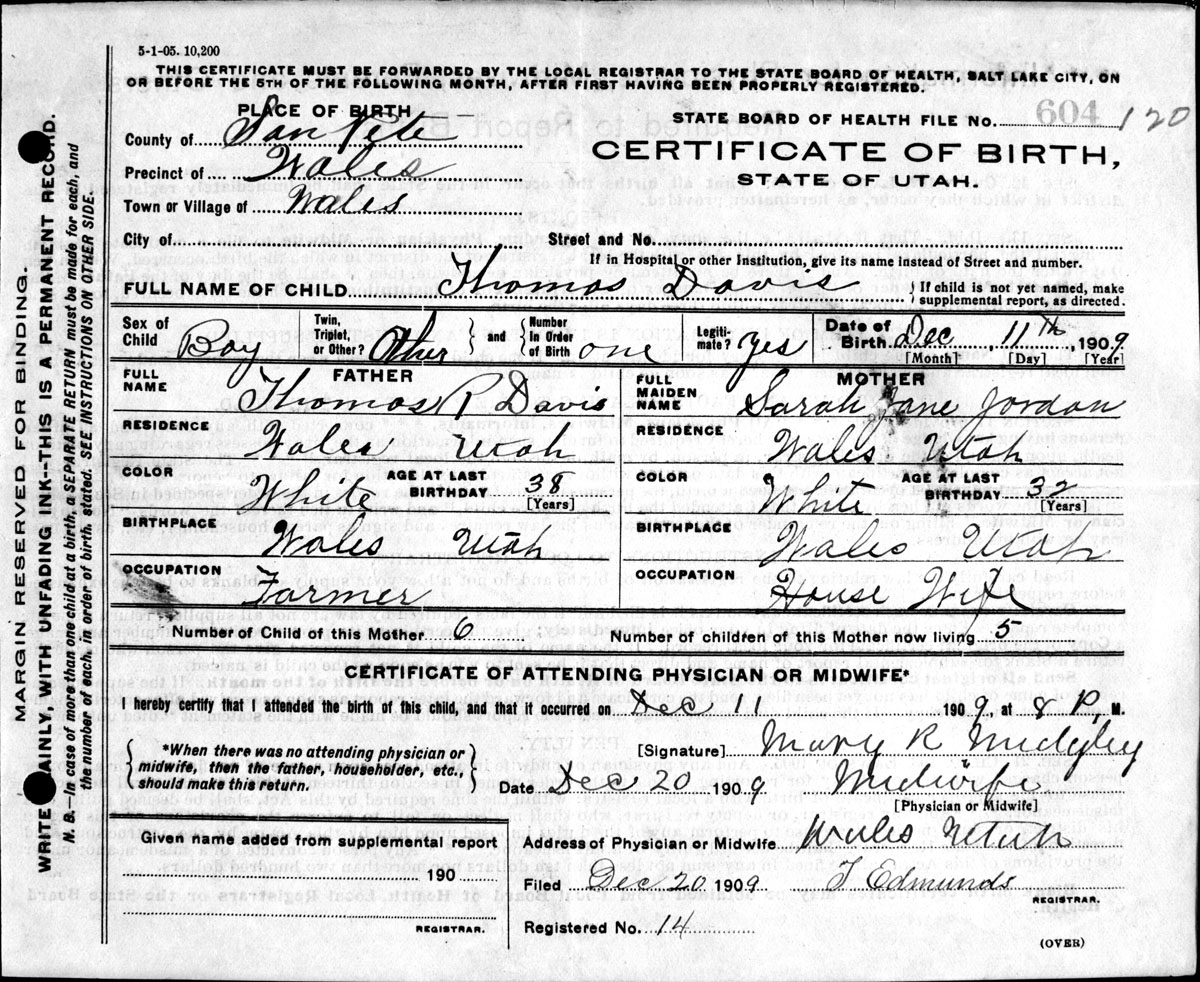 5-1-05. 10,200
THIS CERTIFICATE MUST BE FORWARDED BY THE LOCAL REGISTRAR TO THE STATE BOARD OF HEALTH, SALT LAKE CITY, ON
OR BEFORE THE 5TH OF THE FOLLOWING MONTH, AFTER FIRST HAVING BEEN PROPERLY REGISTERED.
PLACE OF BIRTH
STATE BOARD OF HEALTH FILE No. 604 120
County of San Pete
CERTIFICATE OF BIRTH,
STATE OF UTAH.
Precinct of Wales
Town or Village of Wales
City of Street and No.
If in Hospital or other Institution, give its name instead of Street and number.
FULL NAME OF CHILD Thomas Davis { If child is not yet named, make supplemental report, as directed.
Sex of Child Boy Twin, Triplet, or Other? Other and Number In Order of Birth one Legiti-mate? yes Date of Birth Dec 11th, 1909
[Month] [Day] [Year]
FATHER MOTHER
FULL NAME Thomas R Davis FULL MAIDEN NAME Sarah Jane Jordan
RESIDENCE Wales Utah RESIDENCE Wales Utah
COLOR White AGE AT LAST BIRTHDAY 38 [Years] COLOR White AGE AT LAST BIRTHDAY 32 [Years]
BIRTHPLACE Wales Utah BIRTHPLACE Wales Utah
OCCUPATION Farmer OCCUPATION House Wife
Number of Child of this Mother 6 Number of children of this Mother now living 5
CERTIFICATE OF ATTENDING PHYSICIAN OR MIDWIFE*
I hereby certify that I attended the birth of this child, and that it occurred on Dec 11 1909, at 8 P, M.
{ *When there was no attending physician or midwife, then the father, householder, etc., should make this return. }
[Signature] Mary R Midgley
Date Dec 20 1909 Midwife
[Physician or Midwife]
Given name added from supplemental report
190
REGISTRAR.
Address of Physician or Midwife Wales Utah
Filed Dec 20 1909 T Edmunds
REGISTRAR.
Registered No. 14
(OVER)
MARGIN RESERVED FOR BINDING.
WRITE PLAINLY, WITH UNFADING INK--THIS IS A PERMANENT RECORD.
N. B.—In case of more than one child at a birth, a SEPARATE RETURN must be made for each, and
the number of each, in order of birth, stated. SEE INSTRUCTIONS ON OTHER SIDE.